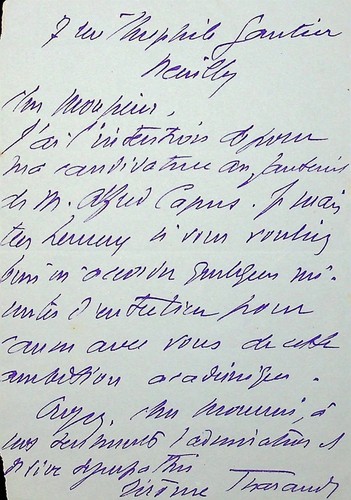 7 rue Théophile Gautier
Neuilly
Cher Monsieur,
J'ai l'intention de poser
ma candidature au fauteuil
de M. Alfred Capus. Je serais
très heureux si vous vouliez
bien m'accorder quelques mi-
nutes d'entretien pour
causer avec vous de cette
ambition académique.
Croyez, cher Monsieur, à
mes sentiments d'admiration et
de vive sympathie
Jérôme Tharaud